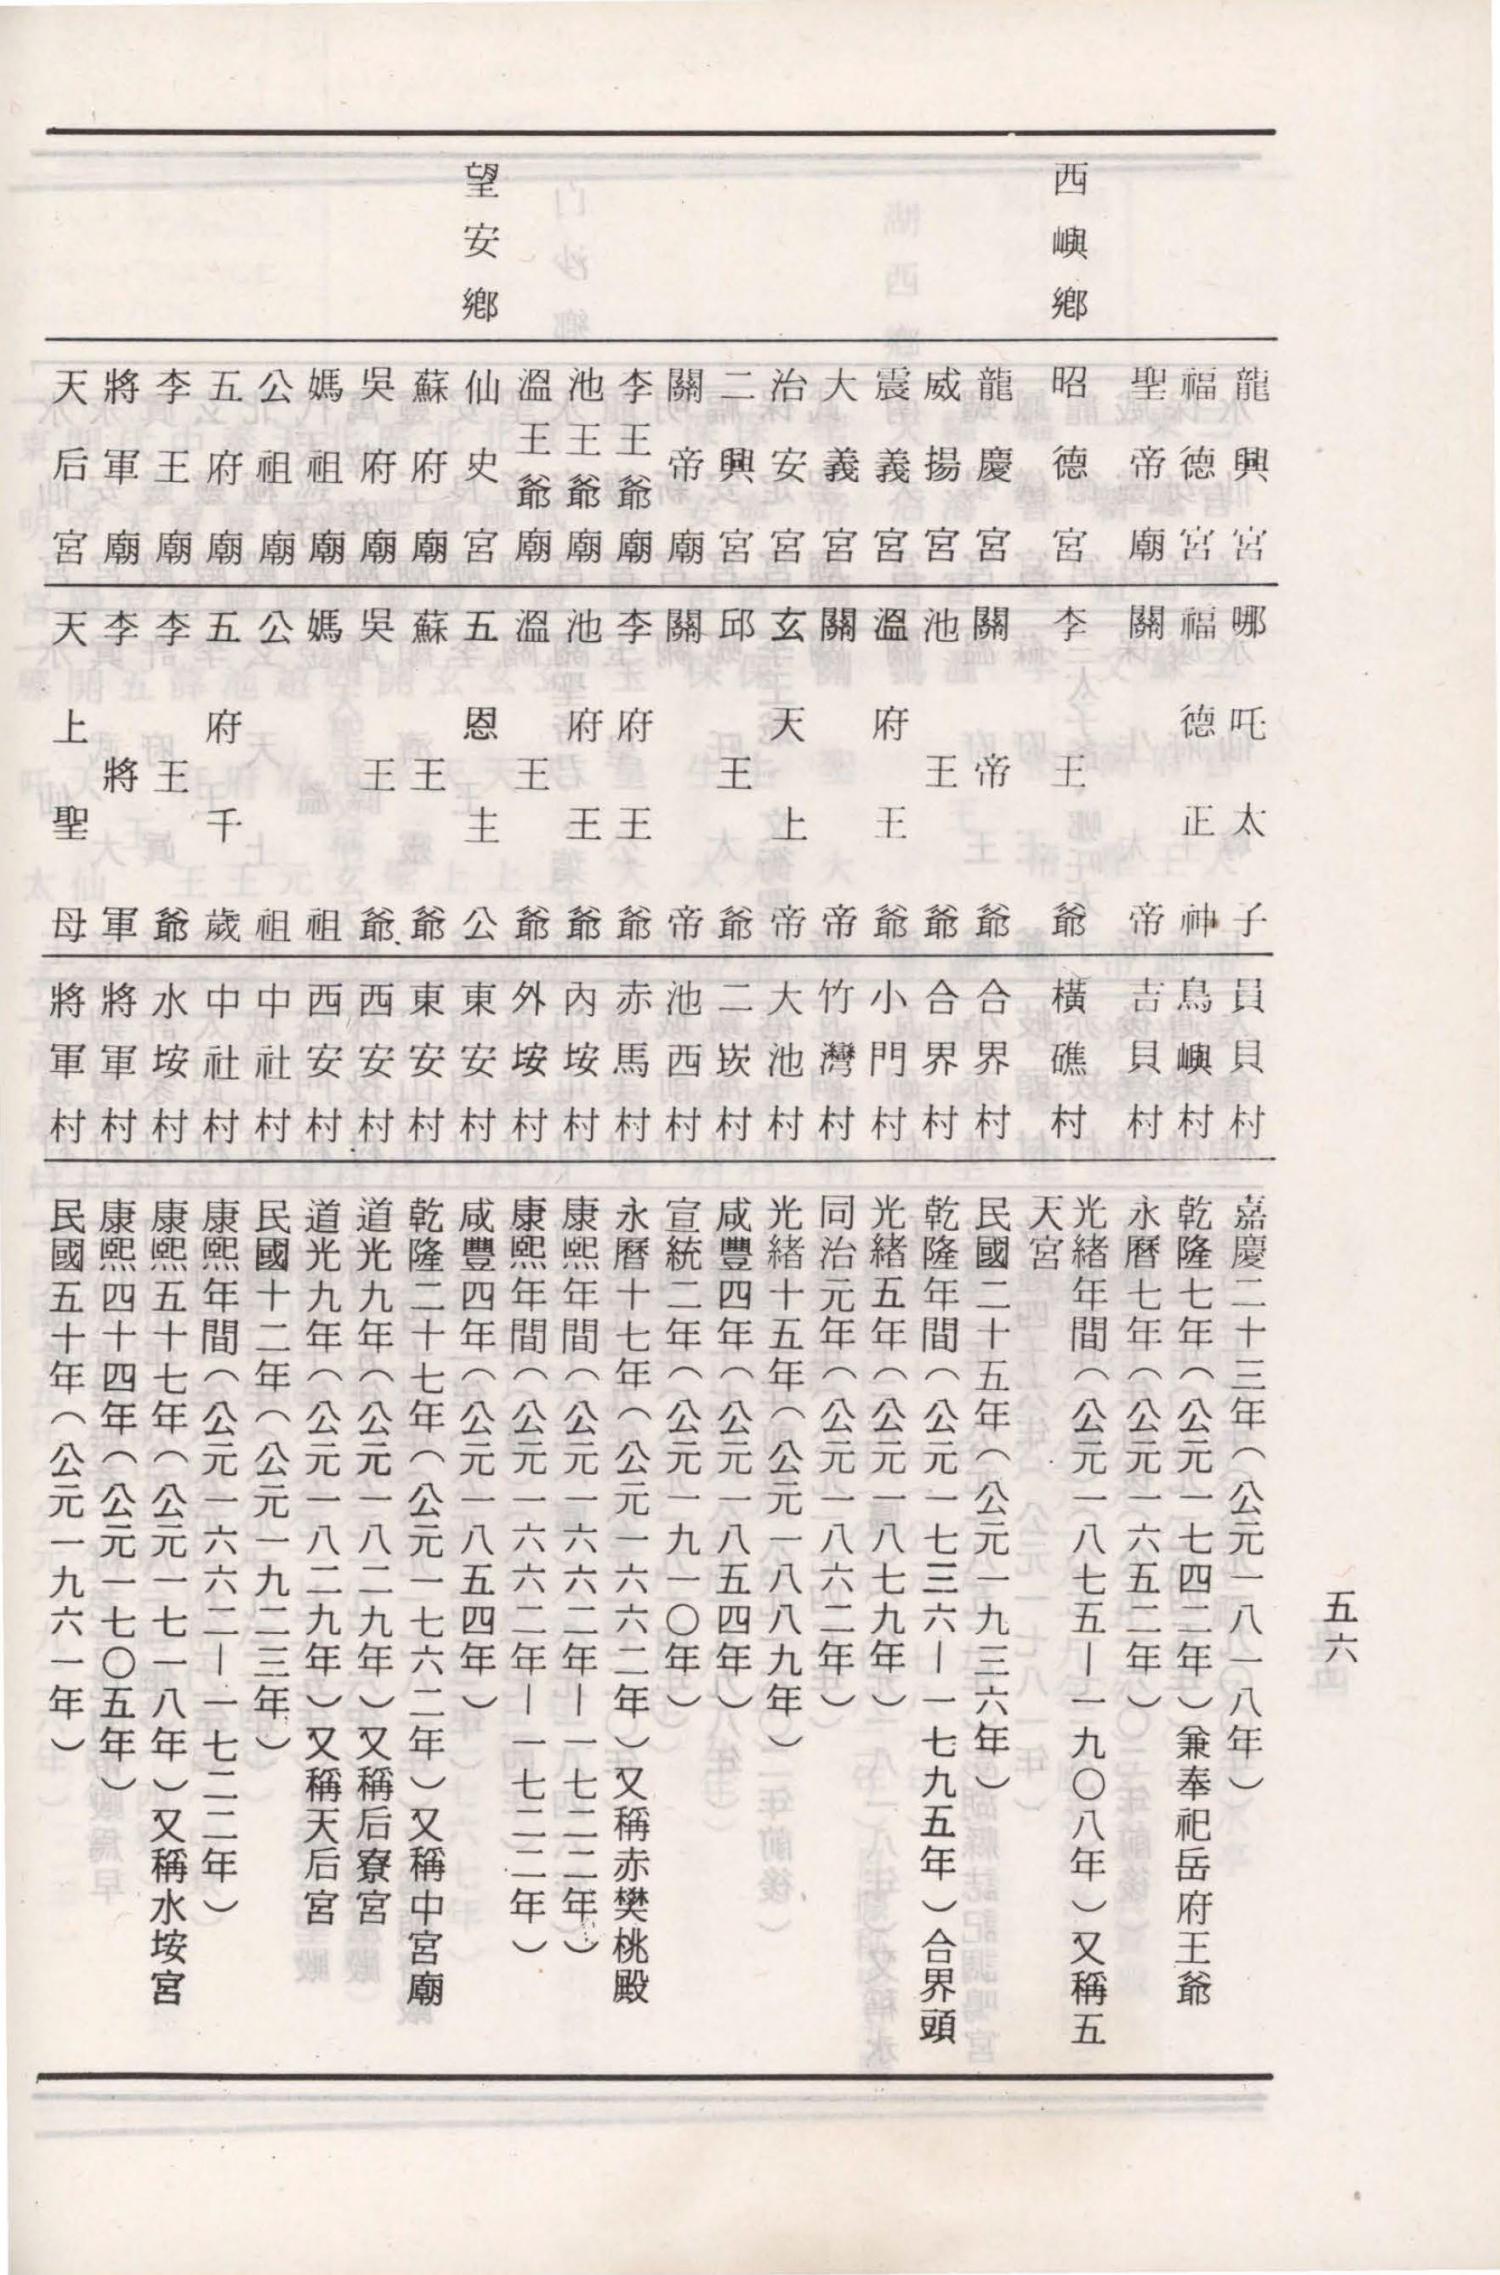 五六
龍興宮 哪吒太子 員貝村 嘉慶二十三年（公元一八一八年）
福德宮 福德正神 鳥嶼村 乾隆七年（公元一七四二年）兼奉祀岳府王爺
聖帝廟 關帝 吉貝村 永曆七年（公元一六五二年）
西嶼鄉 昭德宮 李王爺 橫礁村 光緒年間（公元一八七五—一九〇八年）又稱五
天宮
龍慶宮 關帝爺 合界村 民國二十五年（公元一九三六年）
威揚宮 池王爺 合界村 乾隆年間（公元一七三六—一七九五年）合界頭
震義宮 溫府王爺 小門村 光緒五年（公元一八七九年）
大義宮 關帝 竹灣村 同治元年（公元一八六二年）
治安宮 玄天上帝 大池村 光緒十五年（公元一八八九年）
二興宮 邱王爺 二崁村 咸豐四年（公元一八五四年）
關帝廟 關帝 池西村 宣統二年（公元一九一〇年）
李王爺廟 李府王爺 赤馬村 永曆十七年（公元一六六二年）又稱赤樊桃殿
池王爺廟 池府王爺 內垵村 康熙年間（公元一六六二年—一七二二年）
溫王爺廟 溫王爺 外垵村 康熙年間（公元一六六二年—一七二二年）
望安鄉 仙史宮 五恩主公 東安村 咸豐四年（公元一八五四年）
蘇府廟 蘇王爺 東安村 乾隆二十七年（公元一七六二年）又稱中宮廟
吳府廟 吳王爺 西安村 道光九年（公元一八二九年）又稱后寮宮
媽祖廟 媽祖 西安村 道光九年（公元一八二九年）又稱天后宮
公祖廟 公祖 中社村 民國十二年（公元一九二三年）
五府廟 五府千歲 中社村 康熙年間（公元一六六二—一七二二年）
李王廟 李王爺 水垵村 康熙五十七年（公元一七一八年）又稱水垵宮
將軍廟 李將軍 將軍村 康熙四十四年（公元一七〇五年）
天后宮 天上聖母 將軍村 民國五十年（公元一九六一年）